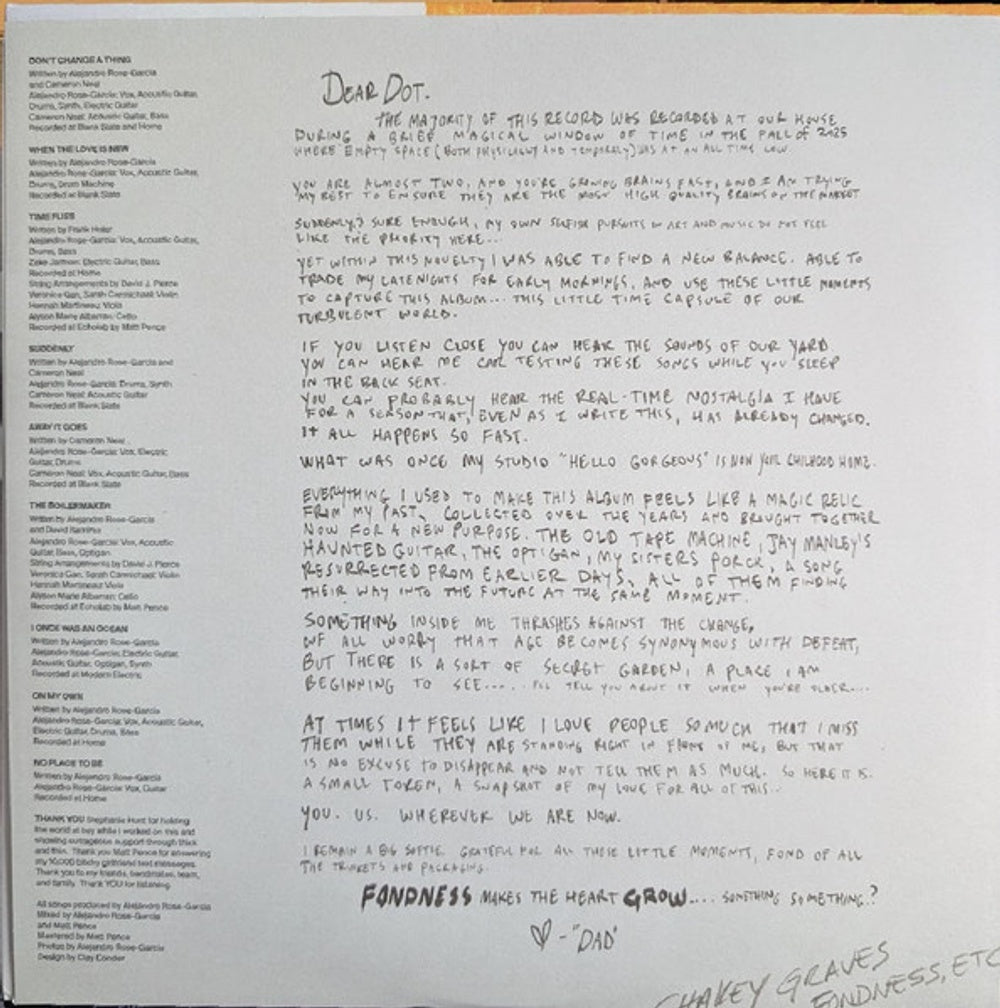 DON'T CHANGE A THING
Written by Alejandro Rose-Garcia
and Cameron Neal
Alejandro Rose-Garcia: Vox, Acoustic Guitar,
Drums, Synth, Electric Guitar
Cameron Neal: Acoustic Guitar, Bass
Recorded at Blank Slate and Home
WHEN THE LOVE IS NEW
Written by Alejandro Rose-Garcia
Alejandro Rose-Garcia: Vox, Acoustic Guitar,
Drums, Drum Machine
Recorded at Blank Slate
TIME FLIES
Written by Frank
Alejandro Rose-Garcia: Vox, Acoustic Guitar,
Drums, Bass
Zeke Jarmon: Electric Guitar, Bass
Recorded at Home
String Arrangements by David J. Pierce
Veronica Gan, Sarah Carmichael: Violin
Hannah Martineau: Viola
Alyson Marie Albarran: Cello
Recorded at Echolab by Matt Pence
SUDDENLY
Written by Alejandro Rose-Garcia and
Cameron Neal
Alejandro Rose-Garcia: Drums, Synth
Cameron Neal: Acoustic Guitar
Recorded at Blank Slate
AWAY IT GOES
Written by Cameron Neal
Alejandro Rose-Garcia: Vox, Electric
Guitar, Drums
Cameron Neal: Vox, Acoustic Guitar, Bass
Recorded at Blank Slate
THE BOILERMAKER
Written by Alejandro Rose-Garcia
and David Ramirez
Alejandro Rose-Garcia: Vox, Acoustic
Guitar, Bass, Optigan
String Arrangements by David J. Pierce
Veronica Gan, Sarah Carmichael: Violin
Hannah Martineau: Viola
Alyson Marie Albarran: Cello
Recorded at Echolab by Matt Pence
I ONCE WAS AN OCEAN
Written by Alejandro Rose-Garcia
Alejandro Rose-Garcia: Electric Guitar,
Acoustic Guitar, Optigan, Synth
Recorded at Modern Electric
ON MY OWN
Written by Alejandro Rose-Garcia
Alejandro Rose-Garcia: Vox, Acoustic Guitar,
Electric Guitar, Drums, Bass
Recorded at Home
NO PLACE TO BE
Written by Alejandro Rose-Garcia
Alejandro Rose-Garcia: Vox, Guitar
Recorded at Home
THANK YOU Stephanie Hunt for holding
the world at bay while I worked on this and
showing outrageous support through thick
and thin. Thank you Matt Pence for answering
my 10,000 bitchy girlfriend text messages.
Thank you to my friends, bandmates, team,
and family. Thank YOU for listening.
All songs produced by Alejandro Rose-Garcia
Mixed by Alejandro Rose-Garcia
and Matt Pence
Mastered by Matt Pence
Photos by Alejandro Rose-Garcia
Design by Clay Conder
DEAR DOT.
THE MAJORITY OF THIS RECORD WAS RECORDED AT OUR HOUSE
DURING A BRIEF MAGICAL WINDOW OF TIME IN THE FALL OF 2025
WHERE EMPTY SPACE (BOTH PHYSICALLY AND TEMPORALLY) WAS AT AN ALL TIME LOW.
YOU ARE ALMOST TWO, AND YOU'RE GROWING BRAINS FAST, AND I AM TRYING
MY BEST TO ENSURE THEY ARE THE MOST HIGH QUALITY BRAINS ON THE MARKET
SUDDENLY, SURE ENOUGH, MY OWN SELFISH PURSUITS IN ART AND MUSIC DO NOT FEEL
LIKE THE PRIORITY HERE...
YET WITHIN THIS NOVELTY I WAS ABLE TO FIND A NEW BALANCE. ABLE TO
TRADE MY LATENIGHTS FOR EARLY MORNINGS, AND USE THESE LITTLE MOMENTS
TO CAPTURE THIS ALBUM... THIS LITTLE TIME CAPSULE OF OUR
TURBULENT WORLD.
IF YOU LISTEN CLOSE YOU CAN HEAR THE SOUNDS OF OUR YARD.
YOU CAN HEAR ME CAR TESTING THESE SONGS WHILE YOU SLEEP
IN THE BACK SEAT.
YOU CAN PROBABLY HEAR THE REAL-TIME NOSTALGIA I HAVE
FOR A SEASON THAT, EVEN AS I WRITE THIS, HAS ALREADY CHANGED.
IT ALL HAPPENS SO FAST.
WHAT WAS ONCE MY STUDIO "HELLO GORGEOUS" IS NOW YOUR CHILDHOOD HOME.
EVERYTHING I USED TO MAKE THIS ALBUM FEELS LIKE A MAGIC RELIC
FROM MY PAST, COLLECTED OVER THE YEARS AND BROUGHT TOGETHER
NOW FOR A NEW PURPOSE. THE OLD TAPE MACHINE, JAY MANLEY'S
HAUNTED GUITAR, THE OPTIGAN, MY SISTERS PORCH, A SONG
RESURRECTED FROM EARLIER DAYS, ALL OF THEM FINDING
THEIR WAY INTO THE FUTURE AT THE SAME MOMENT.
SOMETHING INSIDE ME THRASHES AGAINST THE CHANGE,
WE ALL WORRY THAT AGE BECOMES SYNONYMOUS WITH DEFEAT,
BUT THERE IS A SORT OF SECRET GARDEN, A PLACE I AM
BEGINNING TO SEE..... I'LL TELL YOU ABOUT IT WHEN YOU'RE OLDER....
AT TIMES IT FEELS LIKE I LOVE PEOPLE SO MUCH THAT I MISS
THEM WHILE THEY ARE STANDING RIGHT IN FRONT OF ME, BUT THAT
IS NO EXCUSE TO DISAPPEAR AND NOT TELL THEM AS MUCH. SO HERE IT IS.
A SMALL TOKEN, A SNAPSHOT OF MY LOVE FOR ALL OF THIS..
YOU. US. WHEREVER WE ARE NOW.
I REMAIN A BIG SOFTIE. GRATEFUL FOR ALL THESE LITTLE MOMENTS, FOND OF ALL
THE TRINKETS AND PACKAGING.
FONDNESS MAKES THE HEART GROW.... SOMETHING SOMETHING?
♡ - "DAD"
SHAKEY GRAVES
FONDNESS, ETC